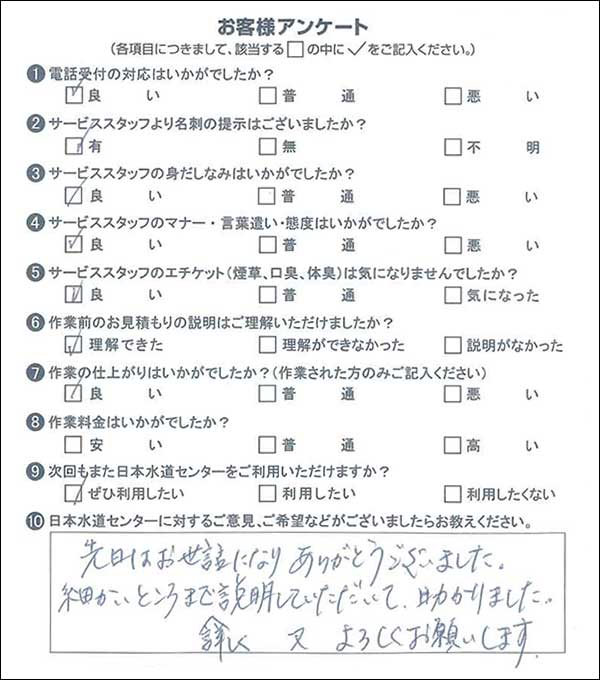 お客様アンケート
(各項目につきまして、該当する□の中に✓をご記入ください。)
❶電話受付の対応はいかがでしたか？
☑良い □普通 □悪い
❷サービススタッフより名刺の提示はございましたか？
☑有 □無 □不明
❸サービススタッフの身だしなみはいかがでしたか？
☑良い □普通 □悪い
❹サービススタッフのマナー・言葉遣い・態度はいかがでしたか？
☑良い □普通 □悪い
❺サービススタッフのエチケット(煙草、口臭、体臭)は気になりませんでしたか？
☑良い □普通 □気になった
❻作業前のお見積もりの説明はご理解いただけましたか？
☑理解できた □理解ができなかった □説明がなかった
❼作業の仕上がりはいかがでしたか？(作業された方のみご記入ください)
☑良い □普通 □悪い
❽作業料金はいかがでしたか？
□安い □普通 □高い
❾次回もまた日本水道センターをご利用いただけますか？
☑ぜひ利用したい □利用したい □利用したくない
❿日本水道センターに対するご意見、ご希望などがございましたらお教えください。
先日はお世話になりありがとうございました。
細かいところまで説明していただいて、助かりました。
詳しく 又 よろしくお願いします